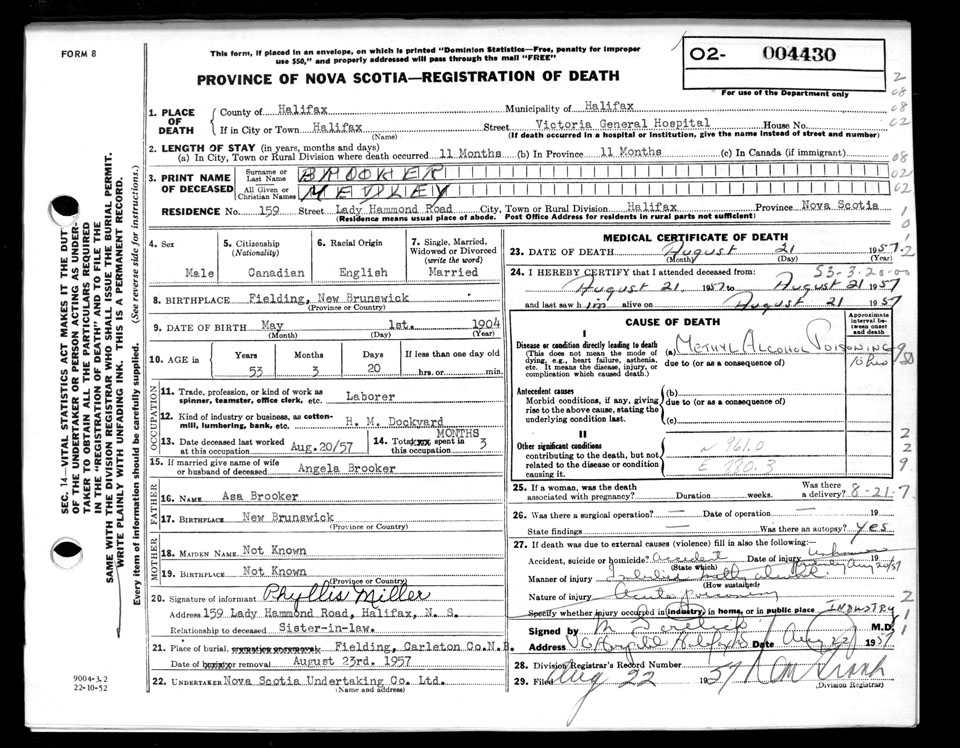 FORM 8
This form, if placed in an envelope, on which is printed "Dominion Statistics—Free, penalty for improper
use $50," and properly addressed will pass through the mail "FREE"
PROVINCE OF NOVA SCOTIA—REGISTRATION OF DEATH
O2- 004430
For use of the Department only
SEC. 14—VITAL STATISTICS ACT MAKES IT THE DUTY
OF THE UNDERTAKER OR PERSON ACTING AS UNDER-
TAKER TO OBTAIN ALL THE PARTICULARS REQUIRED
IN THE "REGISTRATION OF DEATH" AND TO FILE THE
SAME WITH THE DIVISION REGISTRAR WHO SHALL ISSUE THE BURIAL PERMIT.
WRITE PLAINLY WITH UNFADING INK. THIS IS A PERMANENT RECORD.
Every item of information should be carefully supplied. (See reverse side for instructions.)
9004-3.2
22-10-52
1. PLACE OF DEATH
County of Halifax Municipality of Halifax
If in City or Town Halifax Street Victoria General Hospital House No.
(Name) (If death occurred in a hospital or institution, give the name instead of street and number)
2. LENGTH OF STAY (in years, months and days)
(a) In City, Town or Rural Division where death occurred 11 Months (b) In Province 11 Months (c) In Canada (if immigrant)
3. PRINT NAME OF DECEASED
Surname or Last Name BROOKER
All Given or Christian Names MEDLEY
RESIDENCE No. 159 Street Lady Hammond Road City, Town or Rural Division Halifax Province Nova Scotia
(Residence means usual place of abode. Post Office Address for residents in rural parts not sufficient)
4. Sex
Male
5. Citizenship (Nationality)
Canadian
6. Racial Origin
English
7. Single, Married, Widowed or Divorced (write the word)
Married
8. BIRTHPLACE Fielding, New Brunswick
(Province or Country)
9. DATE OF BIRTH May 1st. 1904
(Month) (Day) (Year)
10. AGE in Years Months Days If less than one day old
53 3 20 hrs. or min.
OCCUPATION
11. Trade, profession, or kind of work as spinner, teamster, office clerk, etc. Laborer
12. Kind of industry or business, as cotton-mill, lumbering, bank, etc. H. M. Dockyard
13. Date deceased last worked at this occupation Aug.20/57
14. Total spent in this occupation MONTHS 3
15. If married give name of wife or husband of deceased Angela Brooker
FATHER
16. NAME Asa Brooker
17. BIRTHPLACE New Brunswick
(Province or Country)
MOTHER
18. MAIDEN NAME Not Known
19. BIRTHPLACE Not Known
(Province or Country)
20. Signature of informant Phyllis Miller
Address 159 Lady Hammond Road, Halifax, N. S.
Relationship to deceased Sister-in-law.
21. Place of burial, Fielding, Carleton Co.N.B.
Date of or removal August 23rd. 1957
22. UNDERTAKER Nova Scotia Undertaking Co. Ltd.
(Name and address)
MEDICAL CERTIFICATE OF DEATH
23. DATE OF DEATH August 21 1957
(Month) (Day) (Year)
53-3-20-00
24. I HEREBY CERTIFY that I attended deceased from:
August 21, 1957 to August 21 1957
and last saw him alive on August 21 1957
CAUSE OF DEATH
Approximate interval between onset and death
I
Disease or condition directly leading to death (a) METHYL ALCOHOL POISONING
(This does not mean the mode of dying, e.g., heart failure, asthenia, etc. It means the disease, injury, or complication which caused death.)
due to (or as a consequence of)
Antecedent causes (b)
Morbid conditions, if any, giving rise to the above cause, stating the underlying condition last.
due to (or as a consequence of)
(c)
II
Other significant conditions
contributing to the death, but not related to the disease or condition causing it.
N 961.0
E 880.3
25. If a woman, was the death associated with pregnancy? Duration weeks. Was there a delivery? 8-21-7
26. Was there a surgical operation? — Date of operation — 19
State findings — Was there an autopsy? Yes
27. If death was due to external causes (violence) fill in also the following:
Accident, suicide or homicide? Accident Date of injury Unknown 19
(State which)
Manner of injury
(How sustained)
Nature of injury Acute poisoning
Specify whether injury occurred in industry, in home, or in public place INDUSTRY
Signed by M.D.
Address V G Hospital Halifax Date Aug 22 1957
28. Division Registrar's Record Number
29. Filed Aug 22 1957
(Division Registrar)